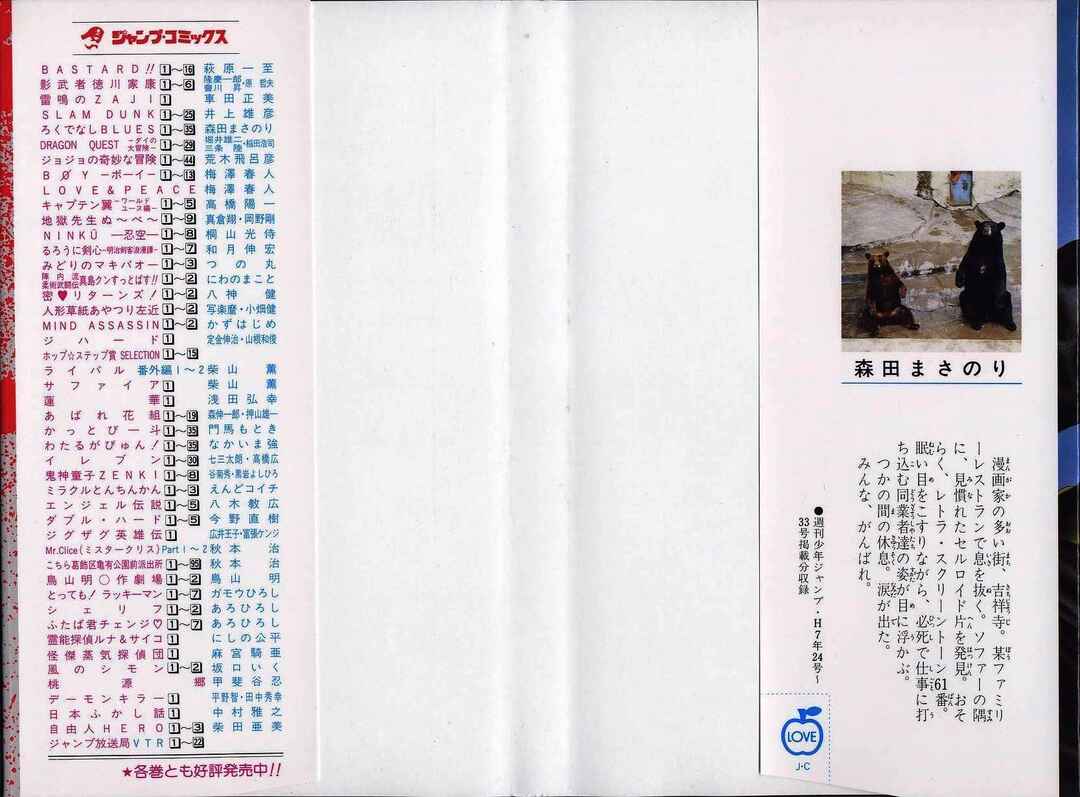 ジャンプ・コミックス
BASTARD!! 1～16 萩原一至
影武者徳川家康 1～6 隆慶一郎・原哲夫
雷鳴のZAJI 1 車田正美
SLAM DUNK 1～25 井上雄彦
ろくでなしBLUES 1～35 森田まさのり
DRAGON QUEST －ダイの大冒険－ 1～29 堀井雄二 三条陸・稲田浩司
ジョジョの奇妙な冒険 1～44 荒木飛呂彦
BØY ―ボーイ― 1～13 梅澤春人
LOVE&PEACE 梅澤春人
キャプテン翼 －ワールドユース編－ 1～5 高橋陽一
地獄先生ぬ～べ～ 1～9 真倉翔・岡野剛
NINKŪ ―忍空― 1～8 桐山光侍
るろうに剣心 －明治剣客浪漫譚－ 1～7 和月伸宏
みどりのマキバオー 1～3 つの丸
陣内流柔術武闘伝 真島クンすっとばす!! 1～2 にわのまこと
密♥リターンズ! 1～2 八神健
人形草紙あやつり左近 1～2 写楽麿・小畑健
MIND ASSASSIN 1～2 かずはじめ
ジハード 1 定金伸治・山根和俊
ホップ☆ステップ賞 SELECTION 1～15
ライバル 番外編1～2 柴山薫
サファイア 1 柴山薫
蓮華 1 浅田弘幸
あばれ花組 1～19 森伸一郎・押山雄一
かっとび一斗 1～35 門馬もとき
わたるがぴゅん! 1～35 なかいま強
イレブン 1～30 七三太朗・高橋広
鬼神童子ZENKI 1～8 谷菊秀・黒岩よしひろ
ミラクルとんちんかん 1～3 えんどコイチ
エンジェル伝説 1～5 八木教広
ダブル・ハード 1～5 今野直樹
ジグザグ英雄伝 1 広井王子・富張ケンジ
Mr.Clice(ミスタークリス) Part 1～2 秋本治
こちら葛飾区亀有公園前派出所 1～95 秋本治
鳥山明○作劇場 1～2 鳥山明
とっても!ラッキーマン 1～7 ガモウひろし
シェリフ 1～2 あろひろし
ふたば君チェンジ♡ 1～7 あろひろし
霊能探偵ルナ&サイコ 1 にしの公平
怪傑蒸気探偵団 1 麻宮騎亜
風のシモン 1～2 坂口いく
桃源郷 甲斐谷忍
デーモンキラー 1 平野智・田中秀幸
日本ふかし話 1 中村雅之
自由人HERO 1～3 柴田亜美
ジャンプ放送局VTR 1～22
★各巻とも好評発売中!!
森田まさのり
漫画家の多い街、吉祥寺。某ファミリ
ーレストランで息を抜く。ソファーの隅
に、見慣れたセルロイド片を発見。おそ
らく、レトラ・スクリーントーン61番。
眠い目をこすりながら、必死で仕事に打
ち込む同業者達の姿が目に浮かぶ。
つかの間の休息。涙が出た。
みんな、がんばれ。
●週刊少年ジャンプ・H7年24号～
33号掲載分収録
LOVE
J・C